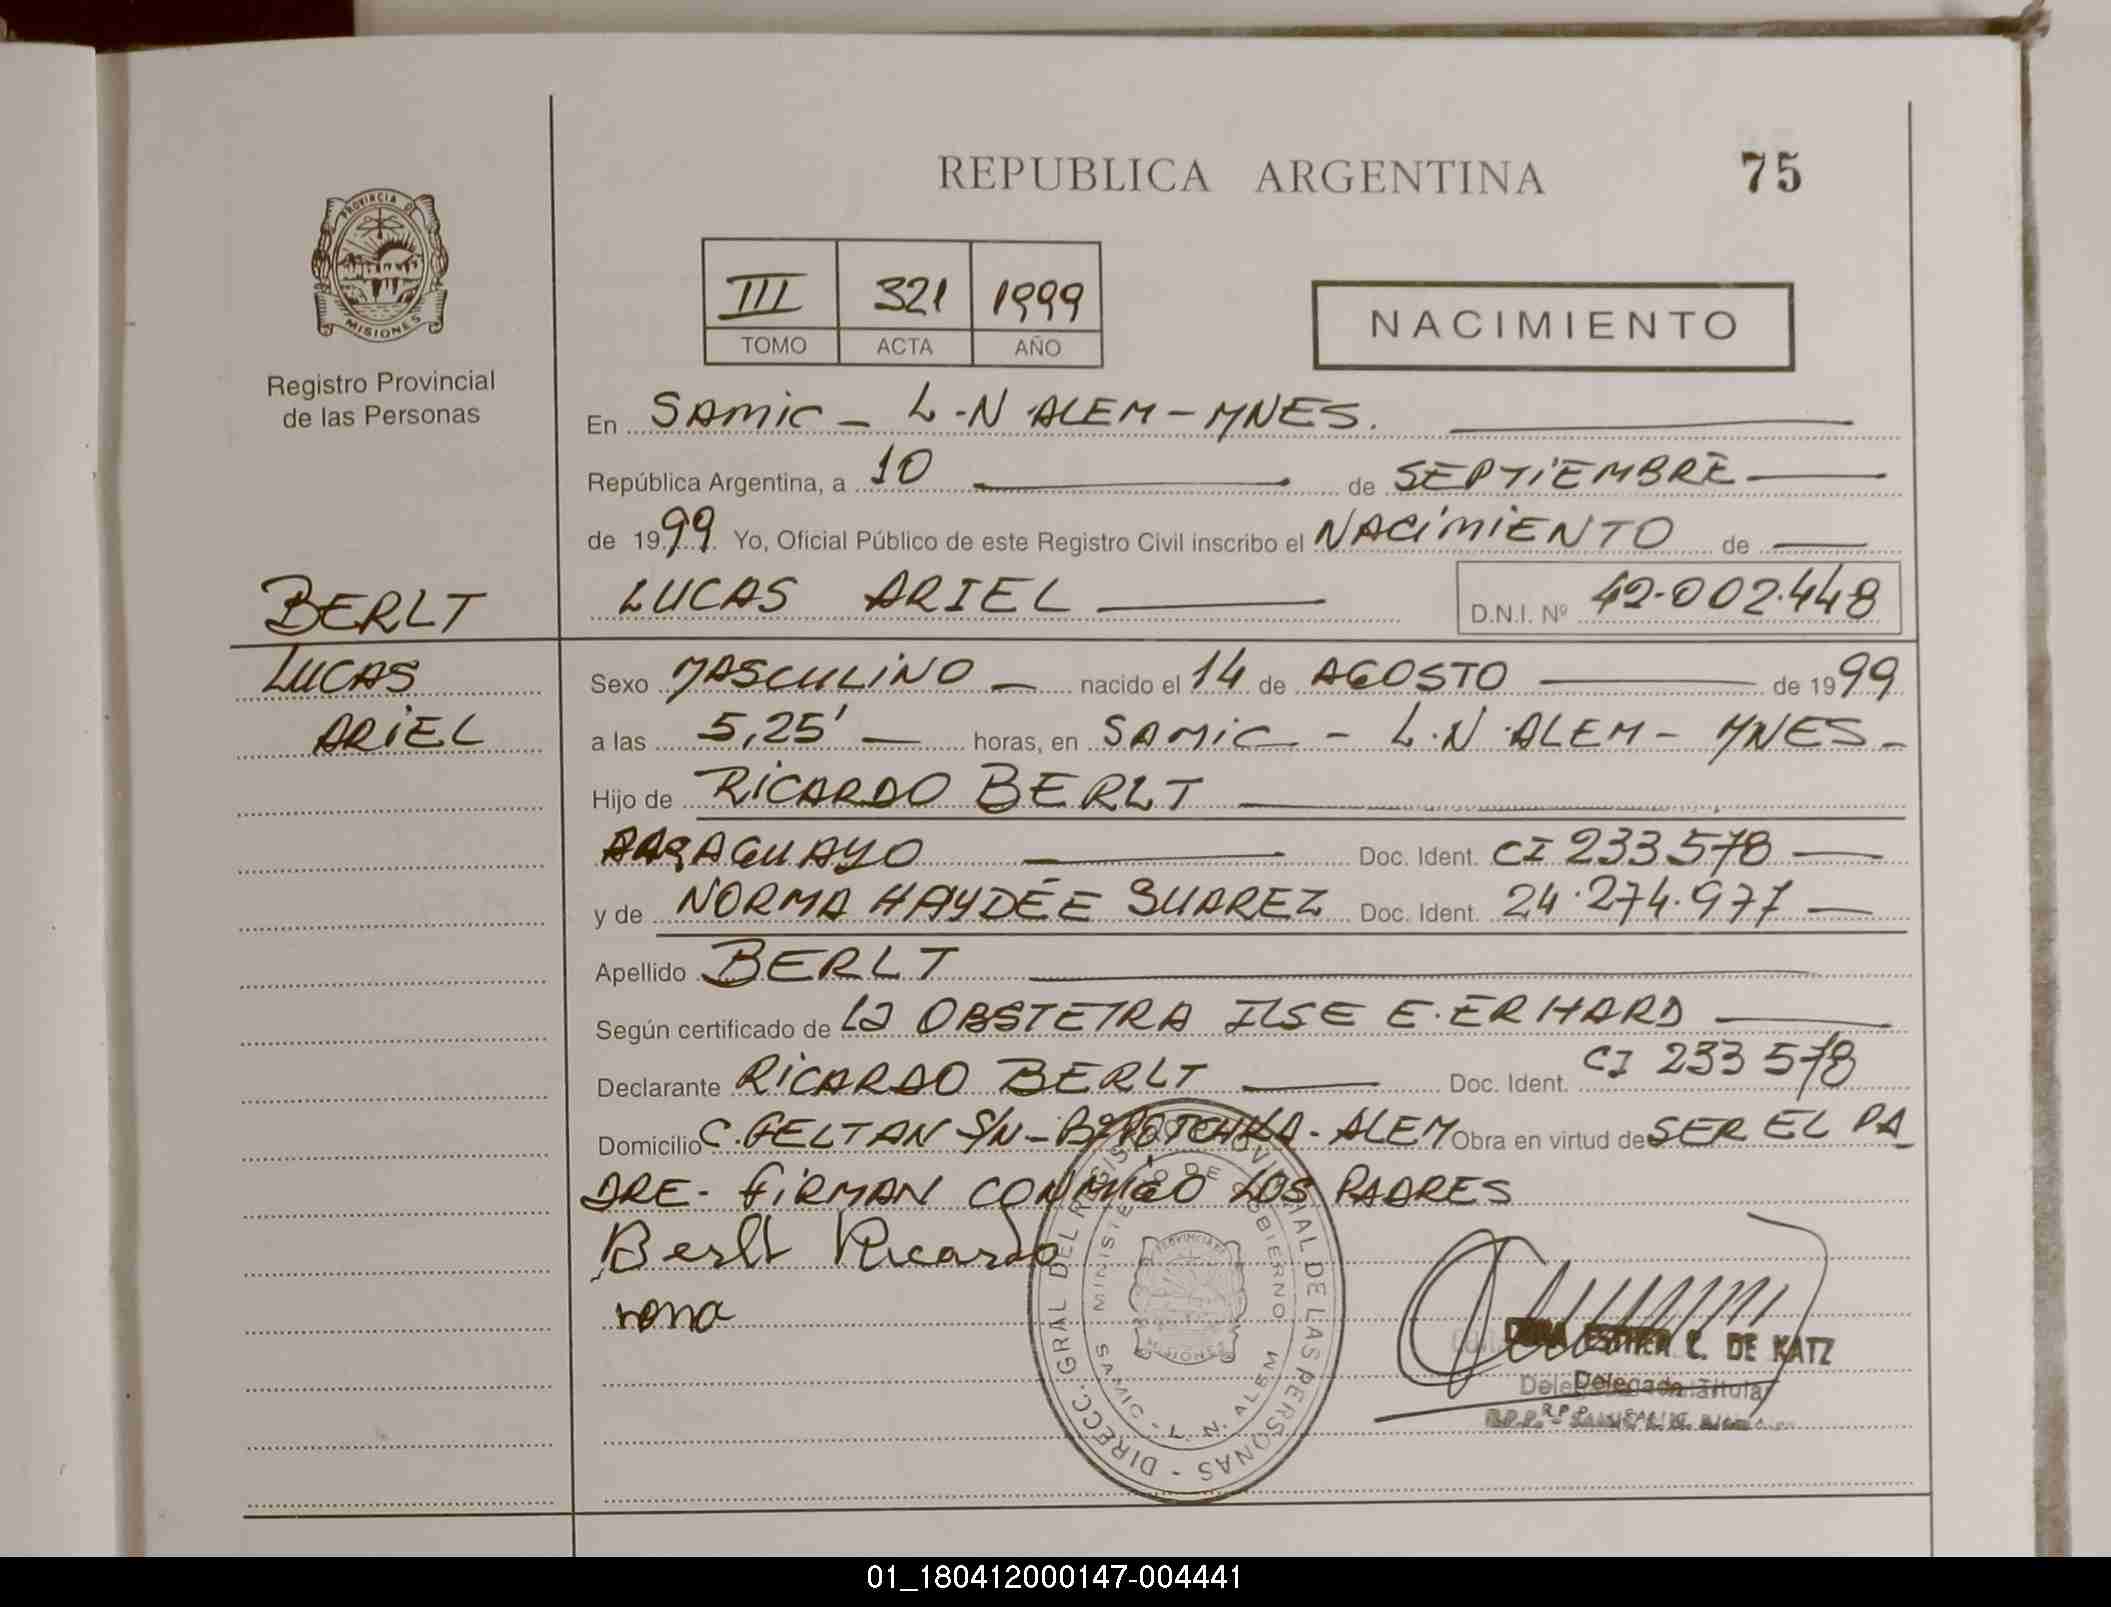 REPUBLICA ARGENTINA
75
PROVINCIA DE
MISIONES
Registro Provincial
de las Personas
III 321 1999
TOMO ACTA AÑO
NACIMIENTO
En SAMIC - L.N.ALEM-MNES.
República Argentina, a 10 de SEPTIEMBRE
de 1999 Yo, Oficial Público de este Registro Civil inscribo el NACIMIENTO de
LUCAS ARIEL D.N.I. Nº 42.002.448
BERLT
LUCAS
ARIEL
Sexo MASCULINO nacido el 14 de AGOSTO de 1999
a las 5,25' horas, en SAMIC - L.N.ALEM - MNES -
Hijo de RICARDO BERLT
PARAGUAYO Doc. Ident. CI 233578
y de NORMA HAYDÉE SUAREZ Doc. Ident. 24.274.977
Apellido BERLT
Según certificado de LA OBSTETRA ILSE E. ERHARD
Declarante RICARDO BERLT Doc. Ident. CI 233 578
Domicilio C. BELTAN S/N - Bº - ALEM Obra en virtud de SER EL PA
DRE - FIRMAN CONMIGO LOS PADRES
Berlt Ricardo
DIRECC. GRAL DEL REGISTRO PROVINCIAL DE LAS PERSONAS
MINISTERIO DE GOBIERNO
SAMIC - L. N. ALEM
PROVINCIA DE
MISIONES
ESTHER C. DE KATZ
Delegada Titular
R.P.P.
01_180412000147-004441